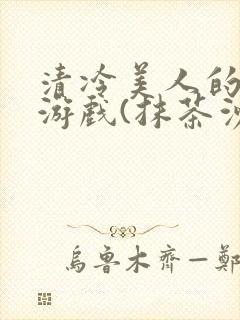 清冷美人的
游戏(抹茶
烏魯木齊—鄭